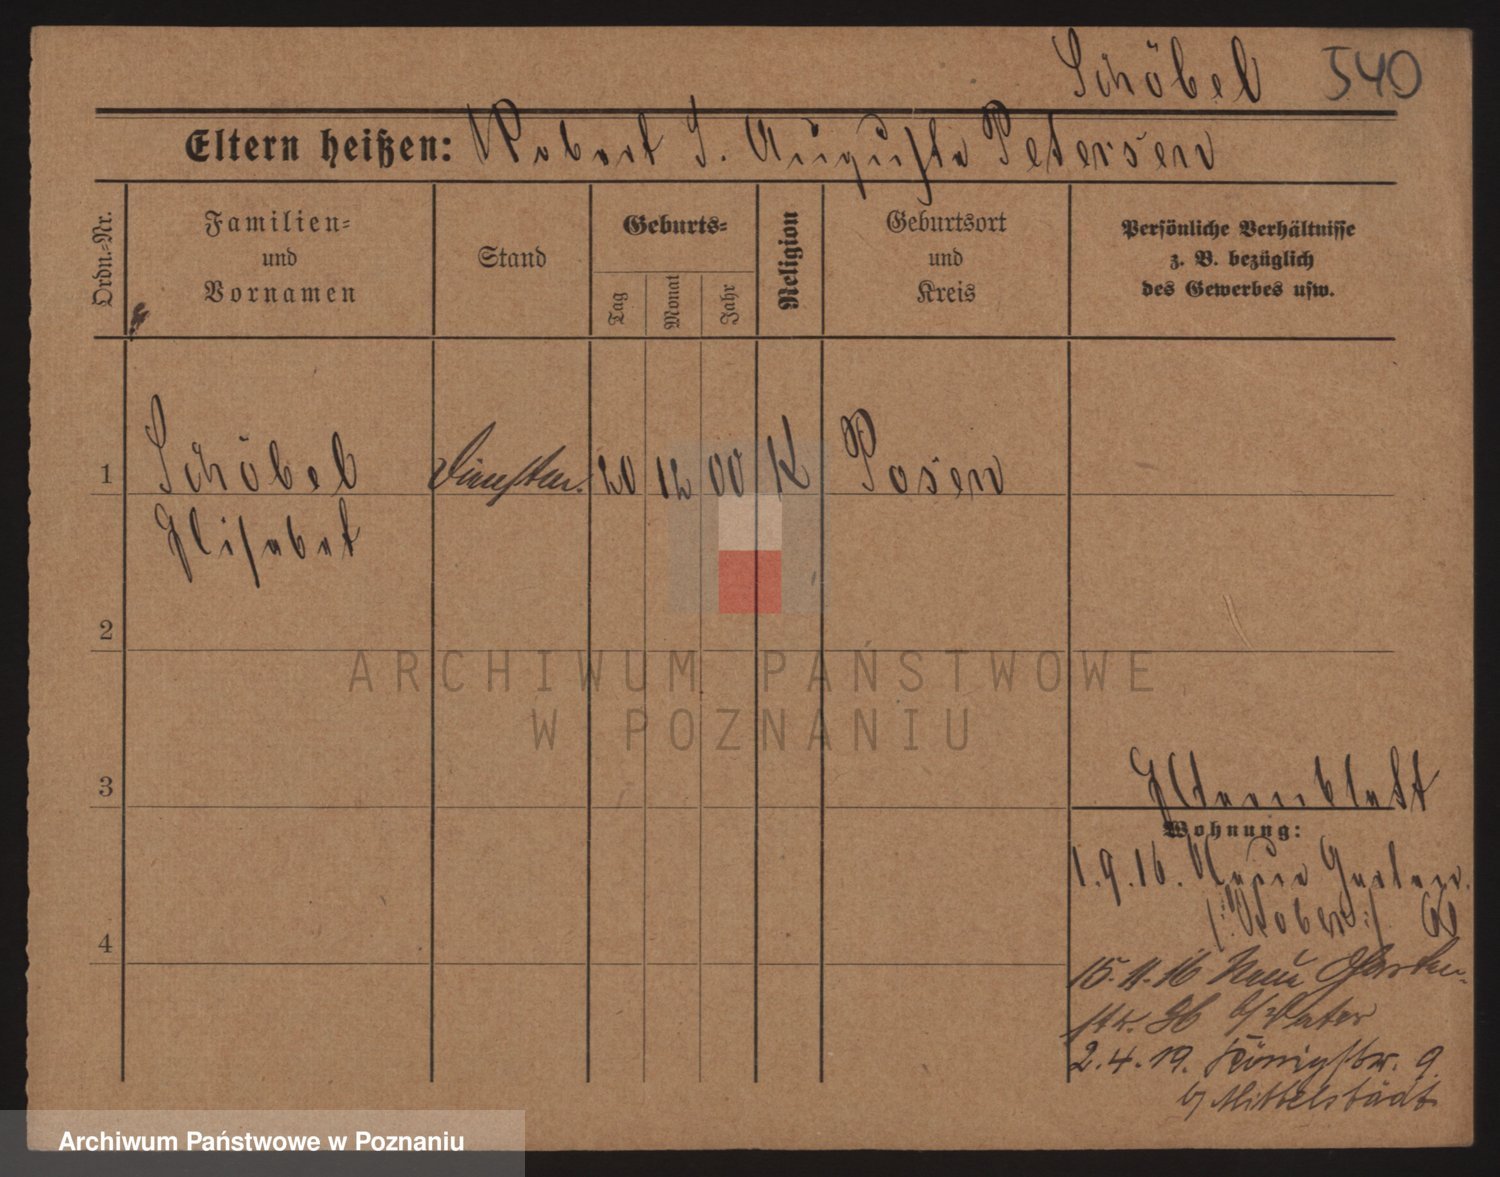 Schöbel 540
Eltern heißen: Robert S. Auguste Petersen
Ordn.-Nr.
Familien-
und
Vornamen
Stand
Geburts-
Tag
Monat
Jahr
Religion
Geburtsort
und
Kreis
Persönliche Verhältnisse
z. B. bezüglich
des Gewerbes usw.
1 Schöbel 20 12 00 K Posen
Elisabet
2
3
4
Elternblatt
Wohnung:
1.9.16. Neue Garten.
15.11.16 Neue Garten-
str. b/ Vater
2.4.19. Königstr. 9
b/ Mittelstädt
ARCHIWUM PAŃSTWOWE
W POZNANIU
Archiwum Państwowe w Poznaniu